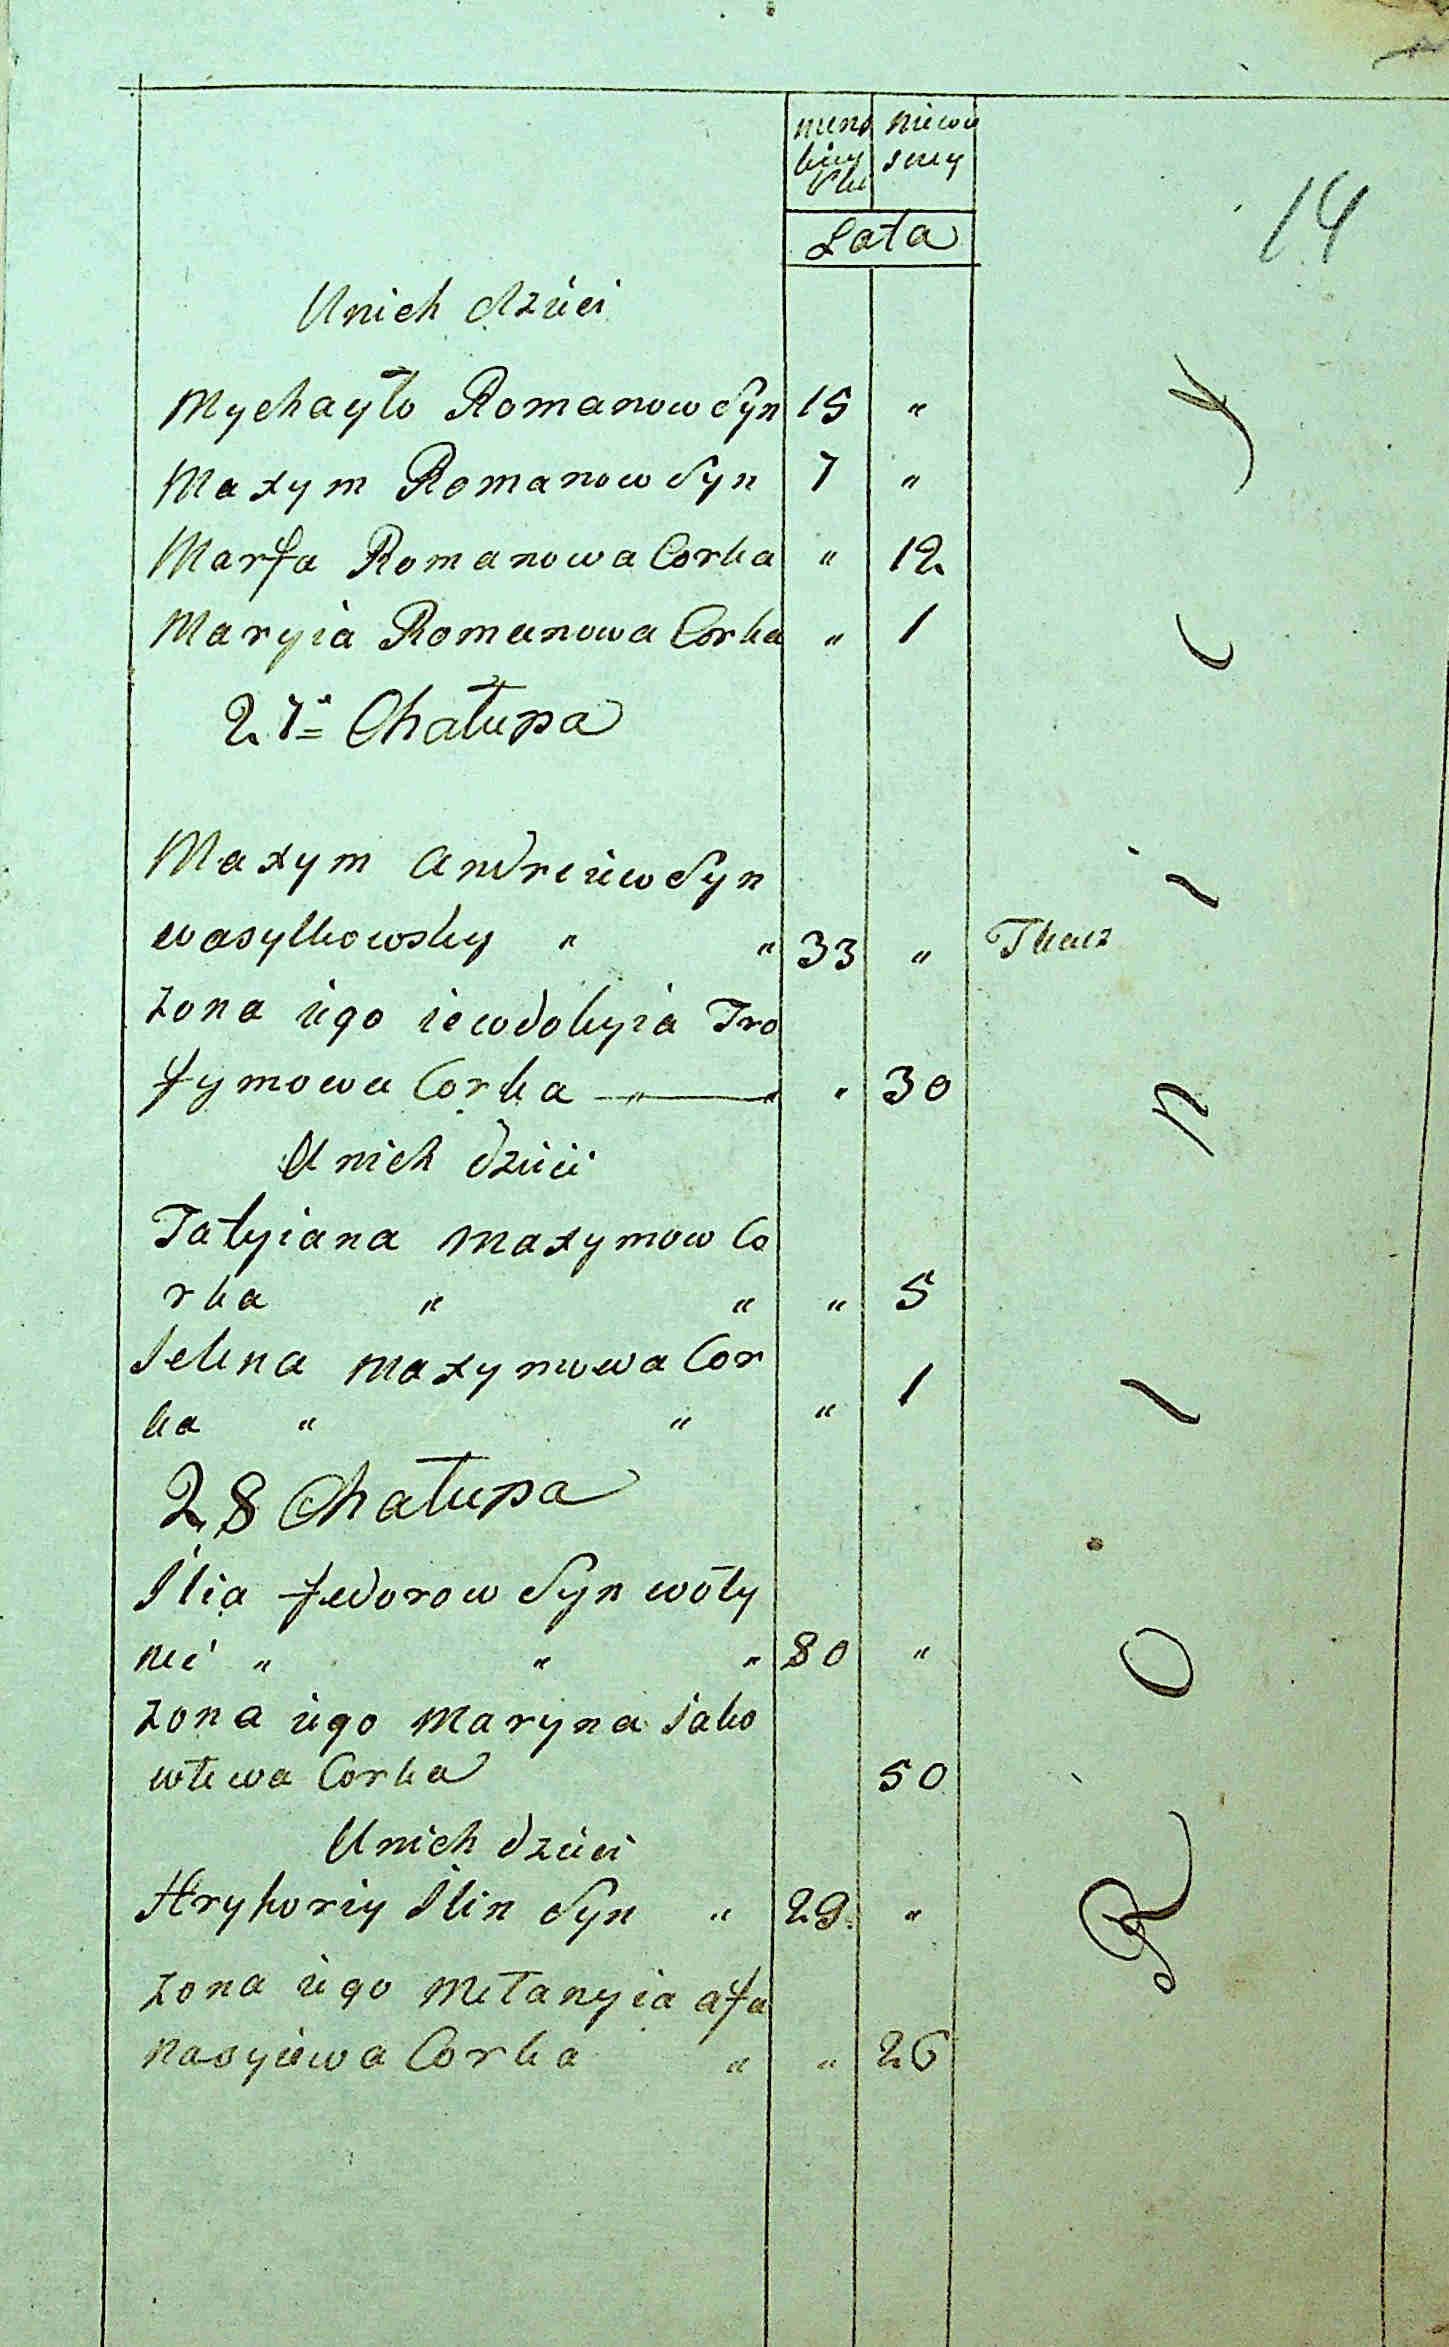 męzs niewie
kiey sciey
Płci
Lata
14
Unich dzieci
Mychayło Romanow Syn 15 "
Maxym Romanow Syn 7 "
Marfa Romanowa Corka " 12
Maryia Romanowa Corka " 1
27a Chałupa
Maxym Andreiew Syn
Wasylkowsky " " 33 " Tkacz
zona iego iewdokyia Tro
fymowa Corka " " " 30
Unich dzieci
Tatyiana Maxymow Co
rka " " " 5
Jelena Maxymowa Cor
ka " " " 1
28 Chałupa
Ilia Fedorow Syn Woły
nec " " " 80 "
zona iego Maryna Jako
wlewa Corka 50
Unich dzieci
Hryhoriy Ilin Syn " 29 "
zona iego Mełanyia Afa
nasyiewa Corka " " 26
Rolnicy